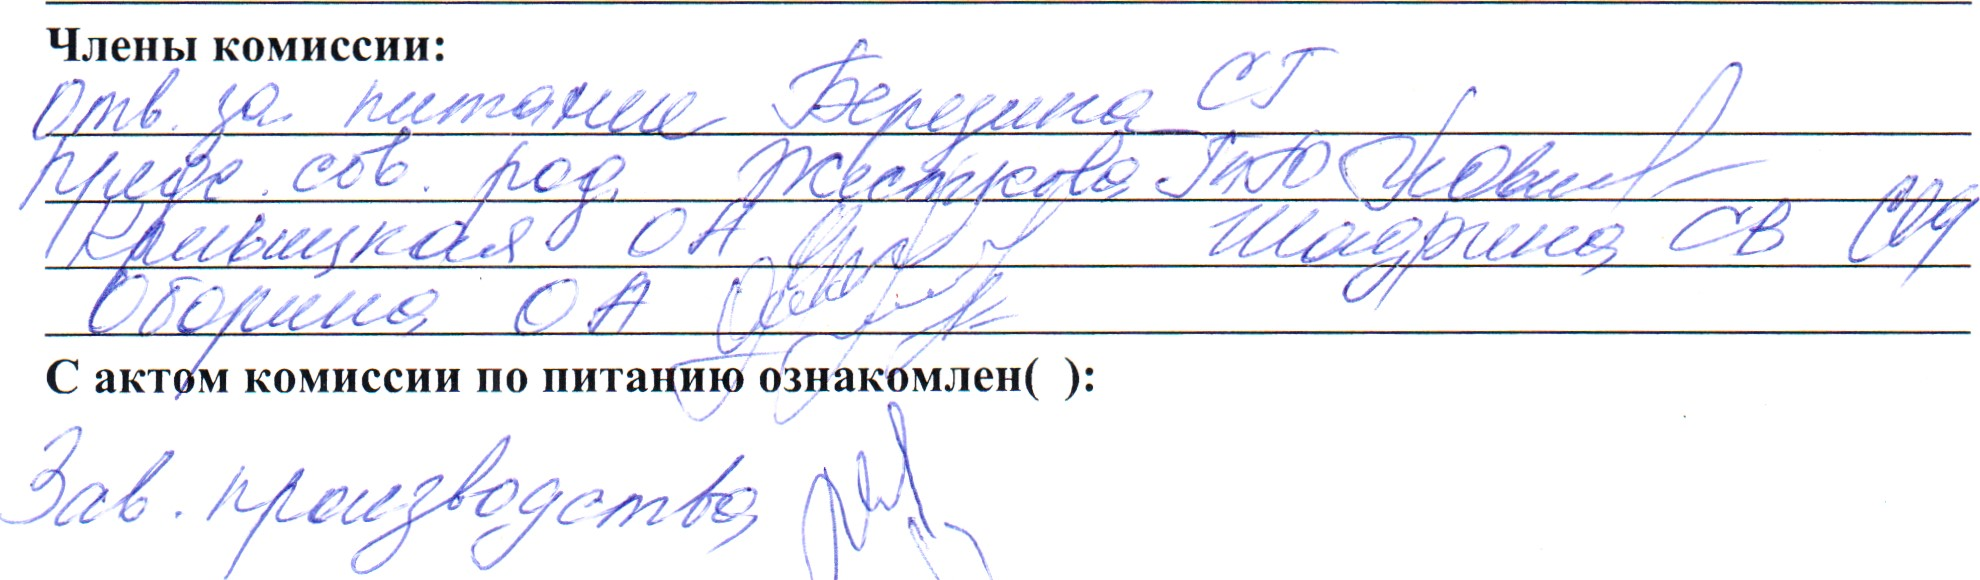 Члены комиссии:
Отв. за питание Березина СГ
Предс. сов. род. Жесткова
ОА Шадрина СВ
Оборина ОА
С актом комиссии по питанию ознакомлен( ):
Зав. производства